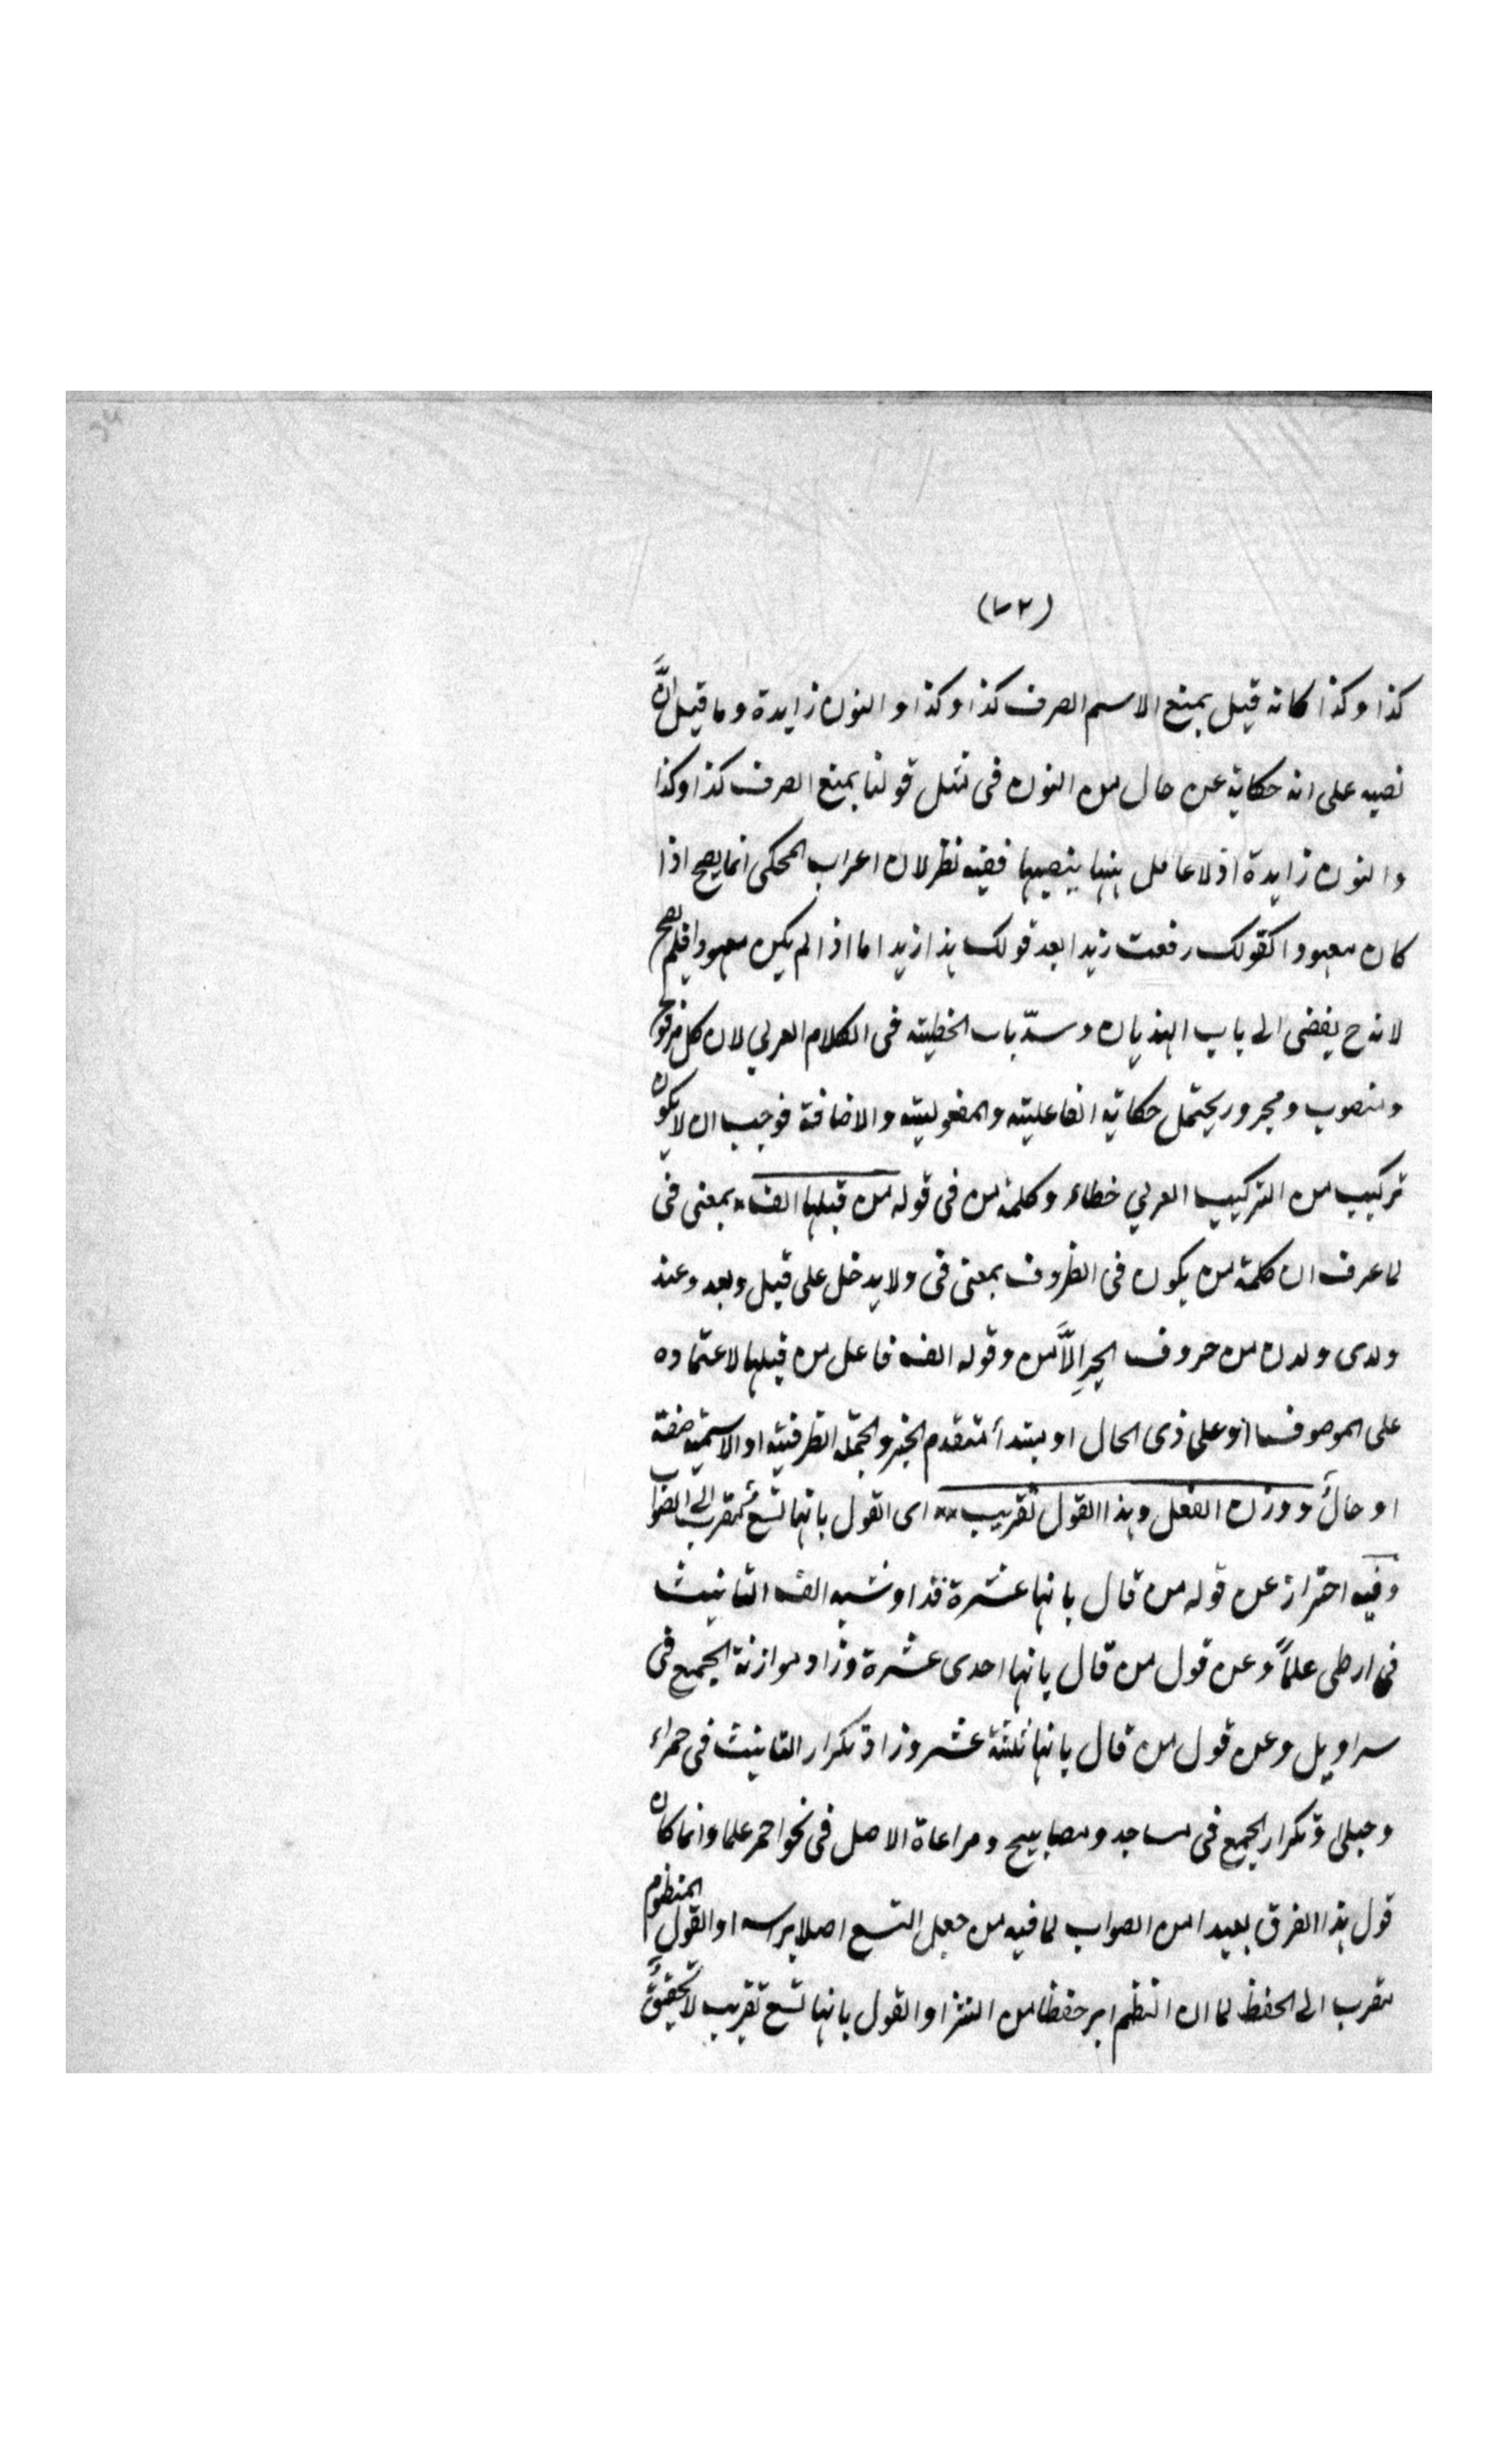 (٧٢)
كذا وكذا كانه قيل يمنع الاسم الصرف كذا وكذا والنون زايدة وما قيل انَّ
نصبه على انه حكاية عن حال من النون فى مثل قولنا يمنع الصرف كذا وكذا
والنون زايدة اذ لا عامل ينصبها ففيه نظر لان اعراب المحكى انما يصح اذا
كان معهودا كقولك رفعت زيدا بعد قولك هذا زيد اما اذا لم يكن معهودا فلم يصح
لانه ح يفضى الى باب الهذيان وسدّ باب الخطيئه فى الكلام العربي لان كل مرفوع
ومنصوب ومجرور يحتمل حكاية الفاعلية والمفعولية والاضافة فوجب ان لا يكون
تركيب من التركيب العربي خطاء وكلمة من فى قوله من قبلها الف بمعنى فى
لما عرف ان كلمة من يكون فى الظروف بمعنى فى ولا يدخل على قبل وبعد وعند
ولدى ولدن من حروف الجرِ الاَّ من وقوله الف فاعل من قبلها لاعتماده
على الموصوف او على ذى الحال او مبتدأ متقدم الخبر والجملة الظرفية او الاسمية صفة
او حالٌ ووزن الفعل وهذا القول تقريب اى القول بانها تسع مقرب الى الصواب
وفيه احتراز عن قوله من قال بانها عشرة فزاد شبه الف التانيث
فى ارطى علماً وعن قول من قال بانها احدى عشرة وزاد موازنة الجمع فى
سراويل وعن قول من قال بانها ثلثة عشر وزاد تكرار التانيث فى حمراء
وحبلى وتكرار الجمع فى مساجد ومصابيح ومراعاة الاصل فى نحو احمر علما وانما كان
قول هذا الفرق بعيدا من الصواب لما فيه من جعل التسع اصلا او القول المنظوم
مقرب الى الحفظ لما ان النظم حفظا من النثر او القول بانها تسع تقريب لا تحقيقٌ